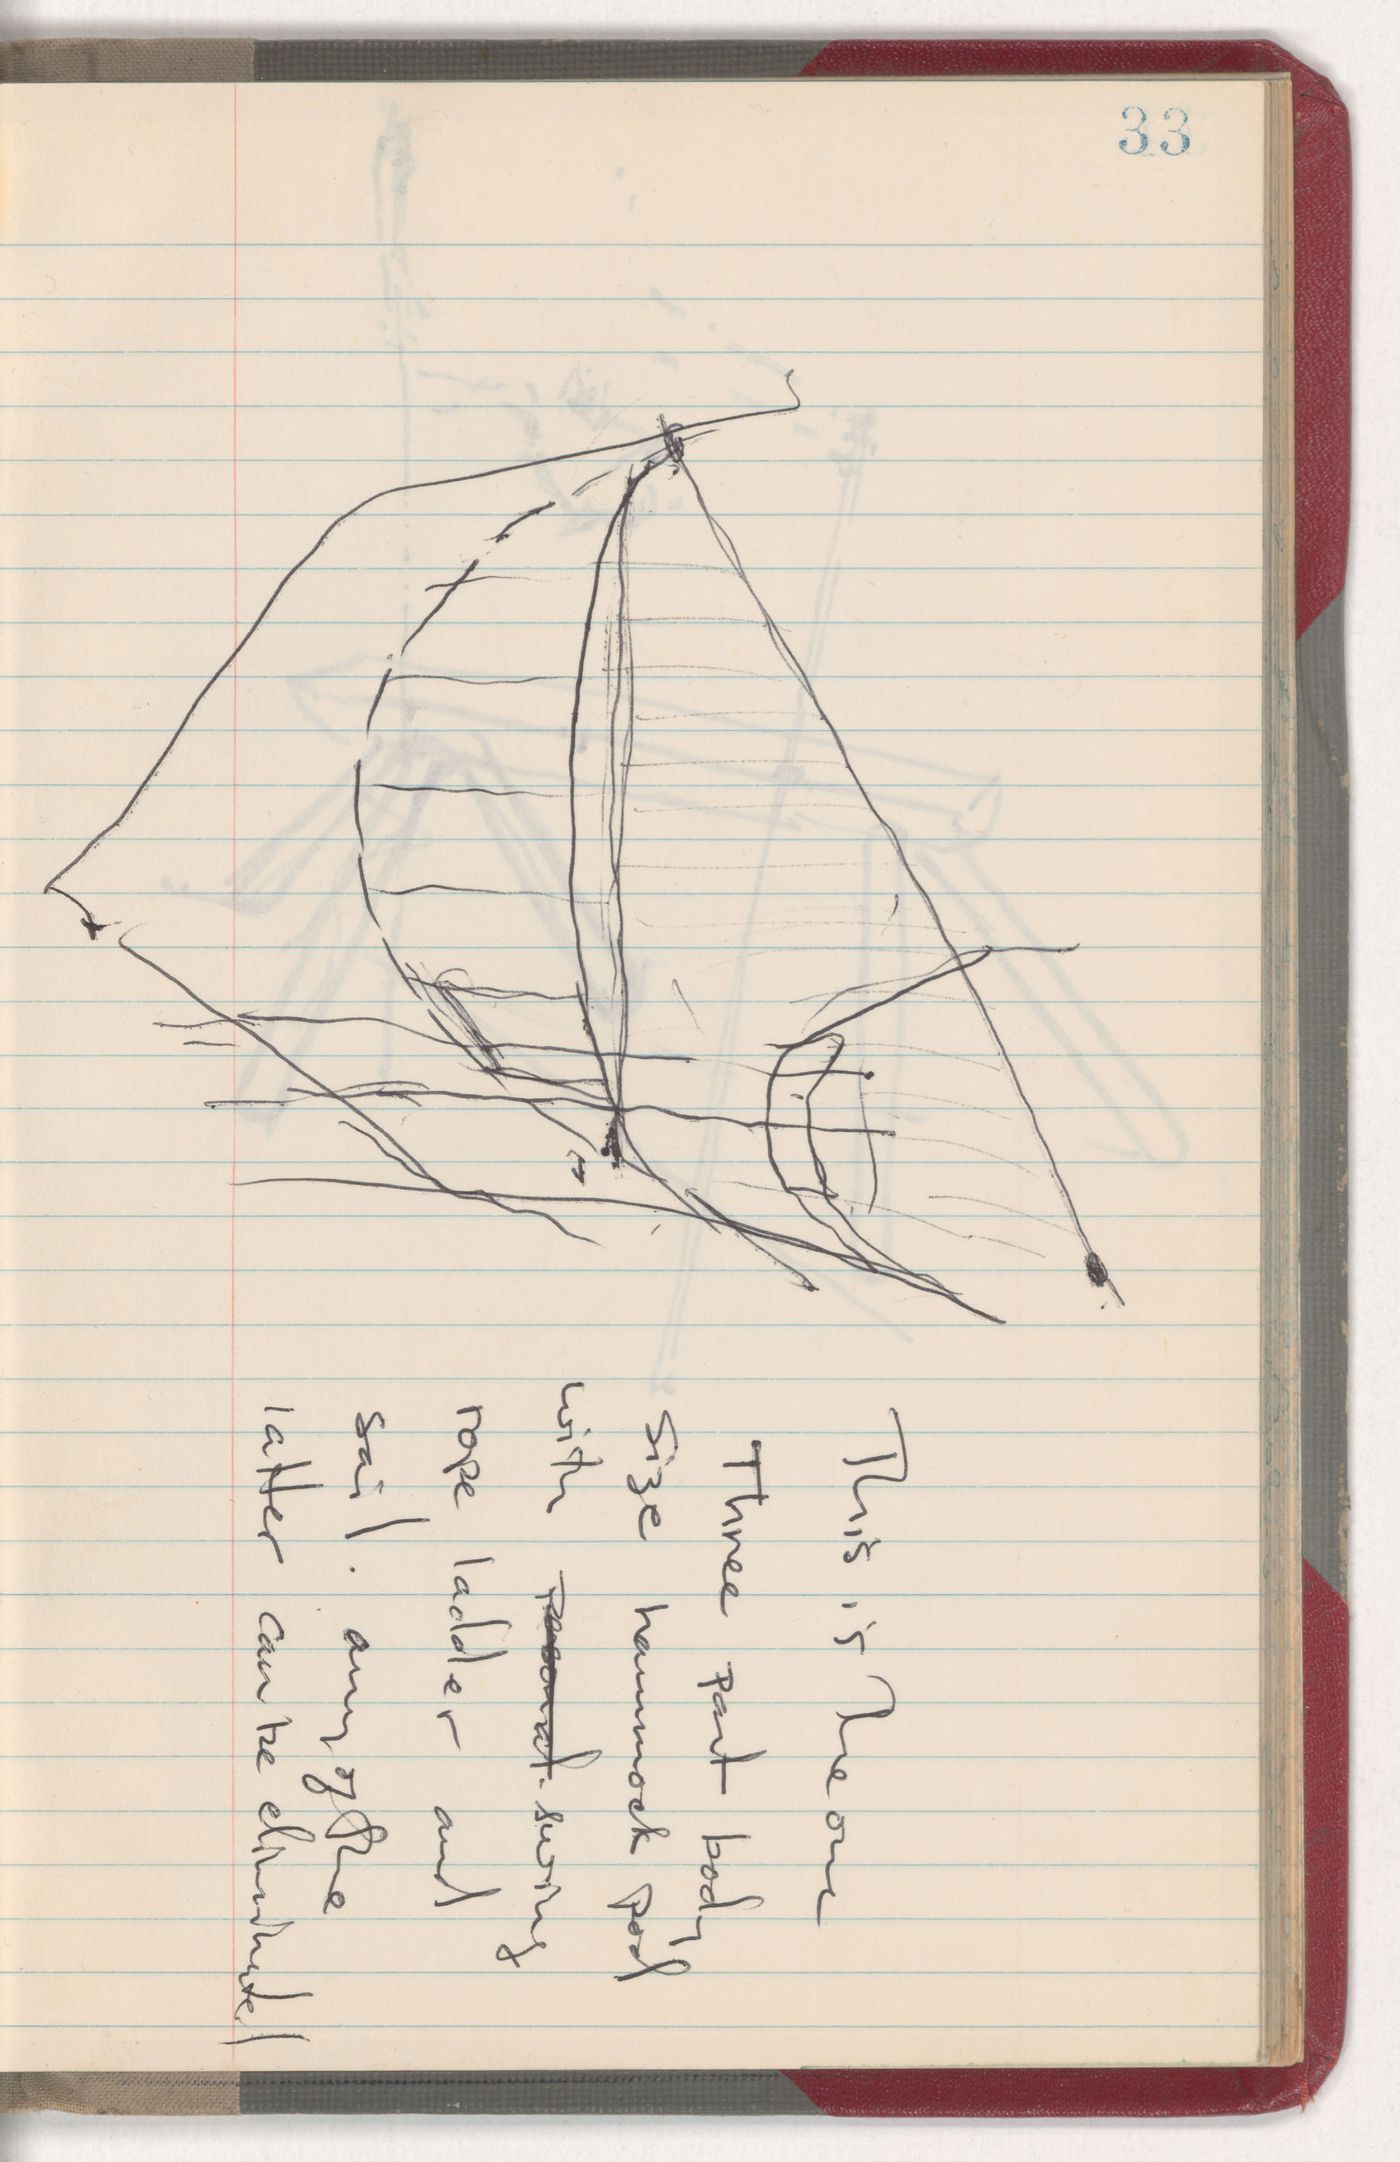 33
This is The one
Three part body
size hammock pod
with swing
rope ladder and
sail. any of the
latter can be eliminated